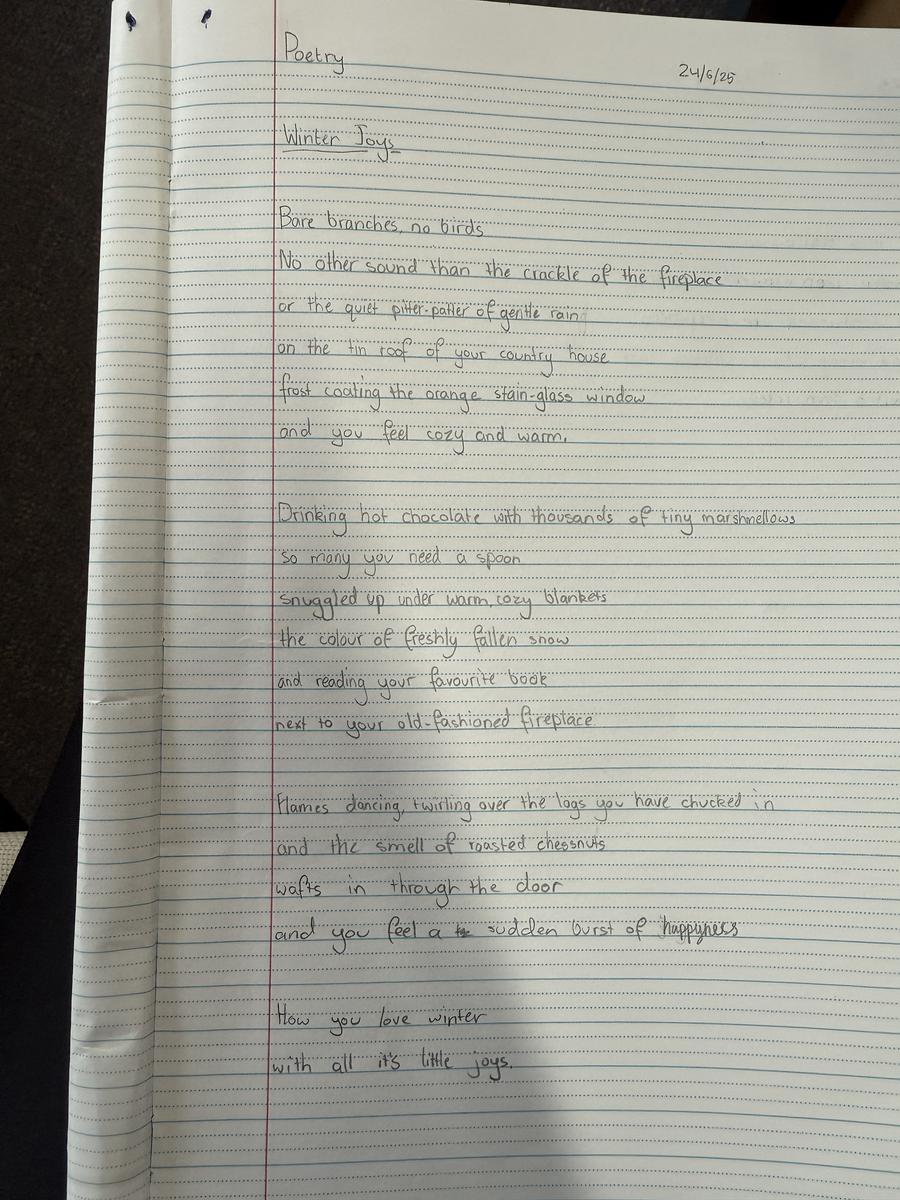 Poetry
24/6/25
Winter Joys
Bare branches, no birds
No other sound than the crackle of the fireplace
or the quiet pitter-patter of gentle rain
on the tin roof of your country house
frost coating the orange stain-glass window
and you feel cozy and warm.
Drinking hot chocolate with thousands of tiny marshmellows
so many you need a spoon
snuggled up under warm, cozy blankets
the colour of freshly fallen snow
and reading your favourite book
next to your old-fashioned fireplace
Flames dancing, twirling over the logs you have chucked in
and the smell of roasted chessnuts
wafts in through the door
and you feel a sudden burst of happyness
How you love winter
with all it's little joys.